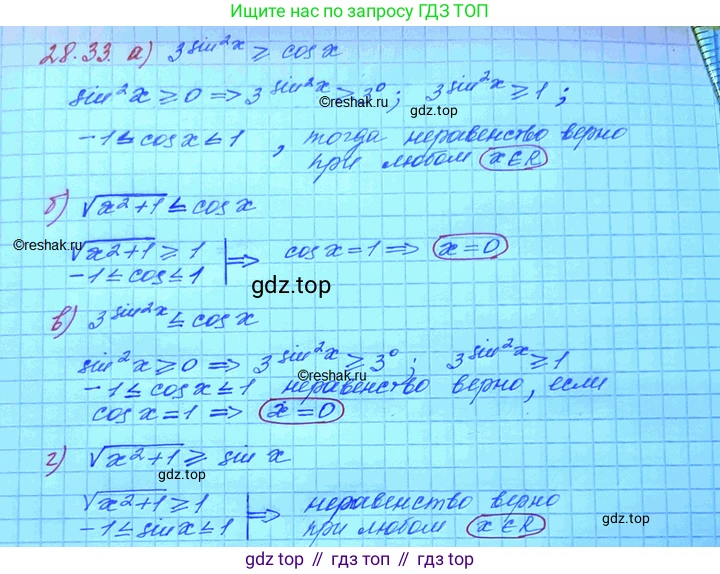 Ищите также по запросу ГДЗ ТОП
28.33. а) 3^sin²x ≥ cos x
sin²x ≥ 0 => 3^sin²x ≥ 3⁰; 3^sin²x ≥ 1;
©reshak.ru
gdz.top
-1 ≤ cos x ≤ 1, тогда неравенство верно
при любом x∈R
б) √x²+1 ≤ cos x
©reshak.ru
√x²+1 ≥ 1
-1 ≤ cos ≤ 1 => cos x = 1 => x = 0
gdz.top
в) 3^sin²x ≤ cos x
sin²x ≥ 0 => 3^sin²x ≥ 3⁰; 3^sin²x ≥ 1
©reshak.ru
-1 ≤ cos x ≤ 1 неравенство верно, если
cos x = 1 => x = 0
г) √x²+1 ≥ sin x
gdz.top
√x²+1 ≥ 1 => неравенство верно
-1 ≤ sin x ≤ 1 при любом x∈R
gdz.top
gdz top // гдз топ // gdz top